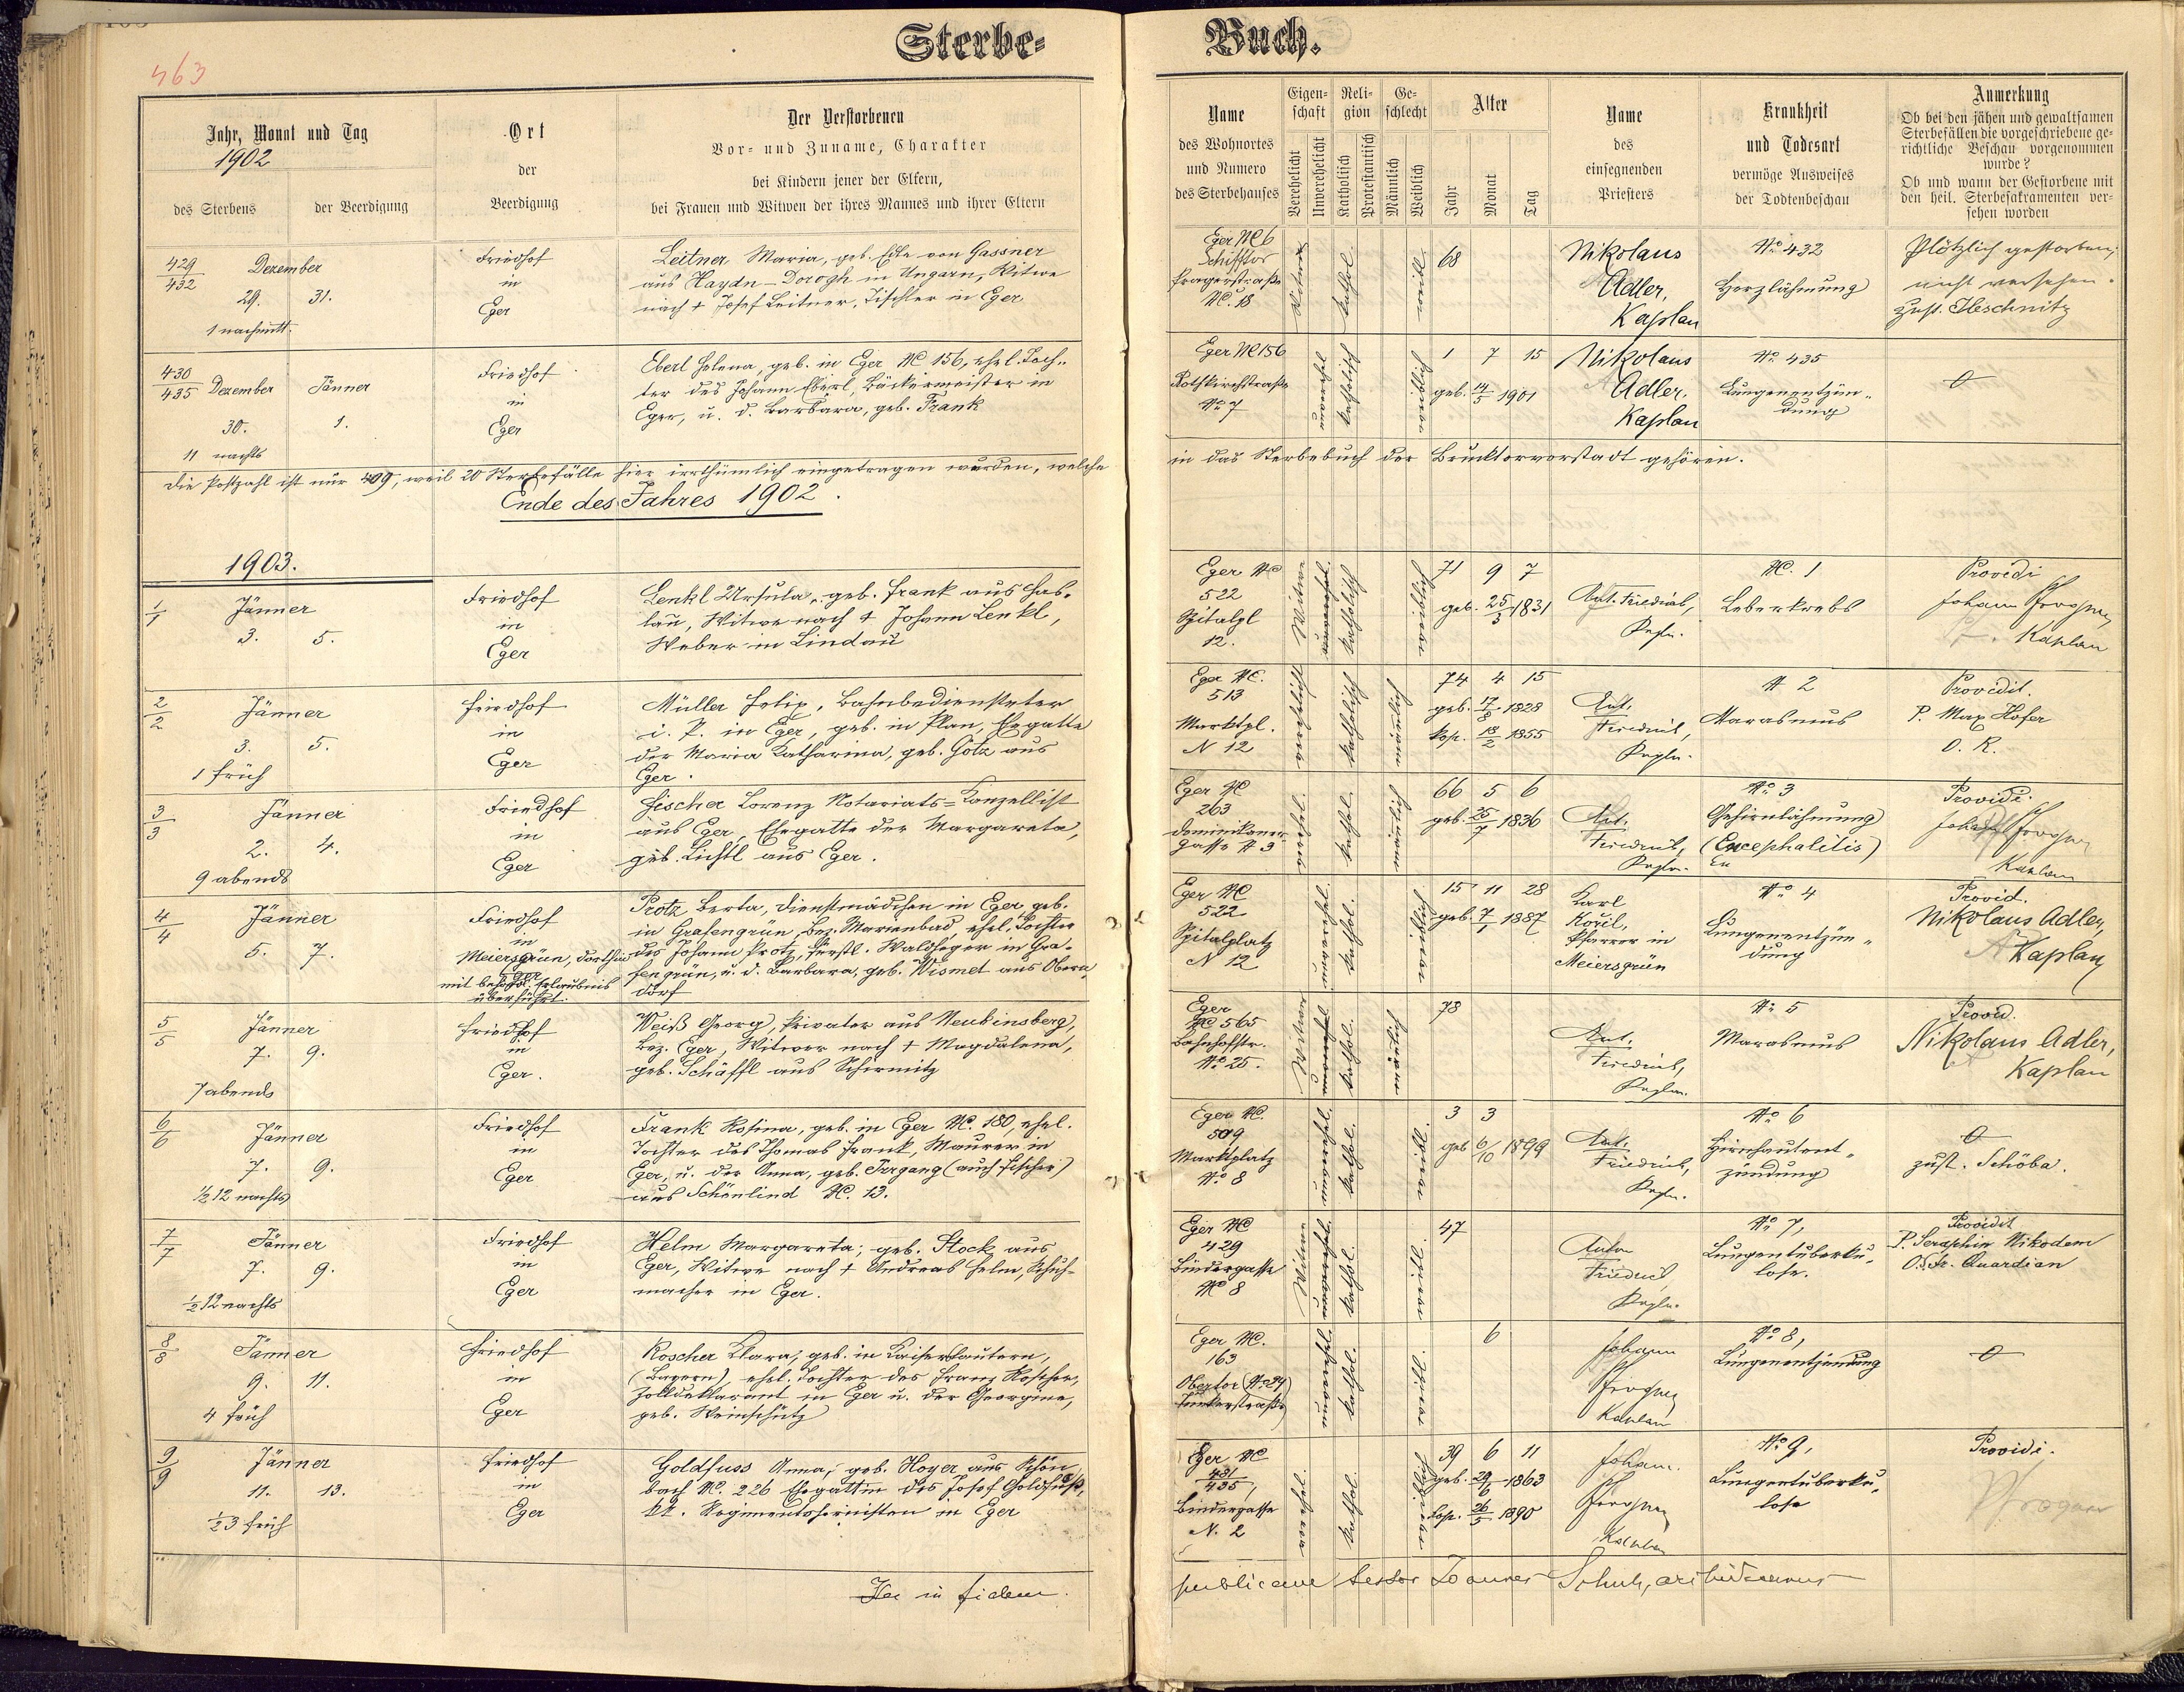 Sterbe-
Buch.
463
Jahr, Monat und Tag
1902
des Sterbens
der Beerdigung
Ort
der
Beerdigung
Der Verstorbenen
Vor- und Zuname, Charakter
bei Kindern jener der Eltern,
bei Frauen und Witwen der ihres Mannes und ihrer Eltern
Name
des Wohnortes
und Numero
des Sterbehauses
Eigen-
schaft
Verehelicht
Unverehelicht
Reli-
gion
Katholisch
Protestantisch
Ge-
schlecht
Männlich
Weiblich
Alter
Jahr
Monat
Tag
Name
des
einsegnenden
Priesters
Krankheit
und Todesart
vermöge Ausweises
der Todtenbeschau
Anmerkung
Ob bei den jähen und gewaltsamen
Sterbefällen die vorgeschriebene ge-
richtliche Beschau vorgenommen
wurde?
Ob und wann der Gestorbene mit
den heil. Sterbesakramenten ver-
sehen worden
429
432
Dezember
29. 31.
1 nachmitt.
Friedhof
in
Eger
Leitner Maria, geb. Edle von Gassner
aus Haydn-Dorogh in Ungarn, Witwe
nach + Josef Leitner, Tischler in Eger
Eger NC 6
Schifftor
Pragerstraße
NC. 18
Witwe
kathol.
weibl.
68
Nikolaus
Adler,
Kaplan
No. 432
Herzlähmung
Plötzlich gestorben;
nicht versehen.
zust.
430
435
Dezember Jänner
30. 1.
11 nachts
Friedhof
in
Eger
Eberl Helena, geb. in Eger NC 156, ehel. Toch-
ter des Johann Eberl, Bäckermeister in
Eger, u. d. Barbara, geb. Frank
Eger NC 156
Rothkirchstraße
No. 7
unverehel
katholisch
weiblich
1 7 15
geb. 14/5 1901
Nikolaus
Adler,
Kaplan
No. 435
Lungenentzün-
dung
Die Postzahl ist nur 409, weil 20 Sterbefälle hier irrthümlich eingetragen wurden, welche
in das Sterbebuch der Brucktorvorstadt gehören.
Ende des Jahres 1902.
1903.
1
1
Jänner
3. 5.
Friedhof
in
Eger
Lenkl Ursula, geb. Frank aus Has-
lau, Witwe nach + Johann Lenkl,
Weber in Lindau
Eger NC
522
Spitalpl
12.
Witwe
katholisch
weiblich
71 9 7
geb. 25/3 1831
Ant. Friedrich,
NC. 1
Leberkrebs
Providi
Johann Frogner,
Kaplan
2
2
Jänner
3. 5.
1 früh
Friedhof
in
Eger
Müller Felix, Bahnbediensteter
i. P. in Eger, geb. in Plan, Ehegatte
der Maria Katharina, geb. Götz aus
Eger.
Eger NC.
513
Marktpl.
N 12
verehelicht
katholisch
männlich
74 4 15
geb. 17/8 1828
kop. 18/2 1855
Ant.
Friedrich,
N 2
Marasmus
Providit.
P. Max Hofer
O. K.
3
3
Jänner
2. 4.
9 abends
Friedhof
in
Eger
Fischer Lorenz Notariats-Kanzellist
aus Eger, Ehegatte der Margareta,
geb. Lichtl aus Eger.
Eger NC
263
Dominikaner-
gasse N 3
verehel.
kathol.
männlich
66 5 6
geb. 25/7 1836
Ant.
Friedrich,
No. 3
Gehirnlähmung
(Encephalitis)
En
Providi
Johann Frogner
Kaplan
4
4
Jänner
5. 7.
Friedhof
in
Meiersgrün, dorthin
Eger
mit behördl. Erlaubnis
überführt.
Protz Berta, Dienstmädchen in Eger geb.
in Grafengrün, Bez. Marienbad, ehel. Tochter
des Johann Protz, fürstl. Waldheger in Gra-
fengrün, u. d. Barbara, geb. Wismet aus Obern
dorf
Eger NC
522
Spitalplatz
N 12
unverehel.
kathol.
weiblich
15 11 28
geb. 7/1 1887
Karl
Kořil,
Pfarrer in
Meiersgrün
No. 4
Lungenentzün-
dung
Provid.
Nikolaus Adler,
Kaplan
5
5
Jänner
7. 9.
7 abends
Friedhof
in
Eger.
Weiß Georg, Privater aus Neukinsberg,
Bez. Eger, Witwer nach + Magdalena,
geb. Schäffl aus Schirmitz
Eger
NC 565
Bahnhofstr.
No. 25.
Witwer
kathol.
männlich
78
Ant.
Friedrich,
No. 5
Marasmus
Provid.
Nikolaus Adler,
Kaplan
6
6
Jänner
7. 9.
1/2 12 nachts
Friedhof
in
Eger
Frank Rosina, geb. in Eger NC. 180, ehel.
Tochter des Thomas Frank, Maurer in
Eger, u. der Anna, geb. Irrgang (auch Fischer)
aus Schönlind NC. 13.
Eger NC.
509
Marktplatz
No. 8
unverehel.
kathol.
weibl.
3 3
geb 6/10 1899
Ant.
Friedrich,
No. 6
Hirnhautent-
zündung
zust. Schöba.
7
7
Jänner
7. 9.
1/2 12 nachts
Friedhof
in
Eger
Helm Margareta, geb. Stock aus
Eger, Witwe nach + Andreas Helm, Schuh-
macher in Eger.
Eger NC
429
Bindergasse
No 8
Witwe
kathol.
weibl.
47
Anton
Friedrich,
No. 7,
Lungentuberku-
lose.
Providit
P. Seraphin Nikodem
O. Fr. Quardian
8
8
Jänner
9. 11.
4 früh
Friedhof
in
Eger
Roscher Klara, geb. in Kaiserslautern,
(Bayern), ehel. Tochter des Franz Roscher,
Zolldeklarant in Eger u. der Georgine,
geb. Weinschütz
Eger NC.
163
Obertor (No. 24)
unverehel.
kathol.
weibl.
6
Johann
Frogner
Kaplan
No. 8,
Lungenentzündung
9
9
Jänner
11. 13.
1/2 3 früh
Friedhof
in
Eger
Goldfuss Anna, geb. Hoyer aus Schön
bach NC. 226 Ehegattin des Josef Goldfuß,
kk. Regimentshornisten in Eger
Eger NC
481
435,
Bindergasse
N. 2
verehel.
kathol.
weiblich
39 6 11
geb. 29/6 1863
kop. 26/5 1890
Johann
Frogner
Kaplan
No. 9,
Lungentuberku-
lose
Providi.
Frogner
in fidem
publicam testor Joannes Schuh,